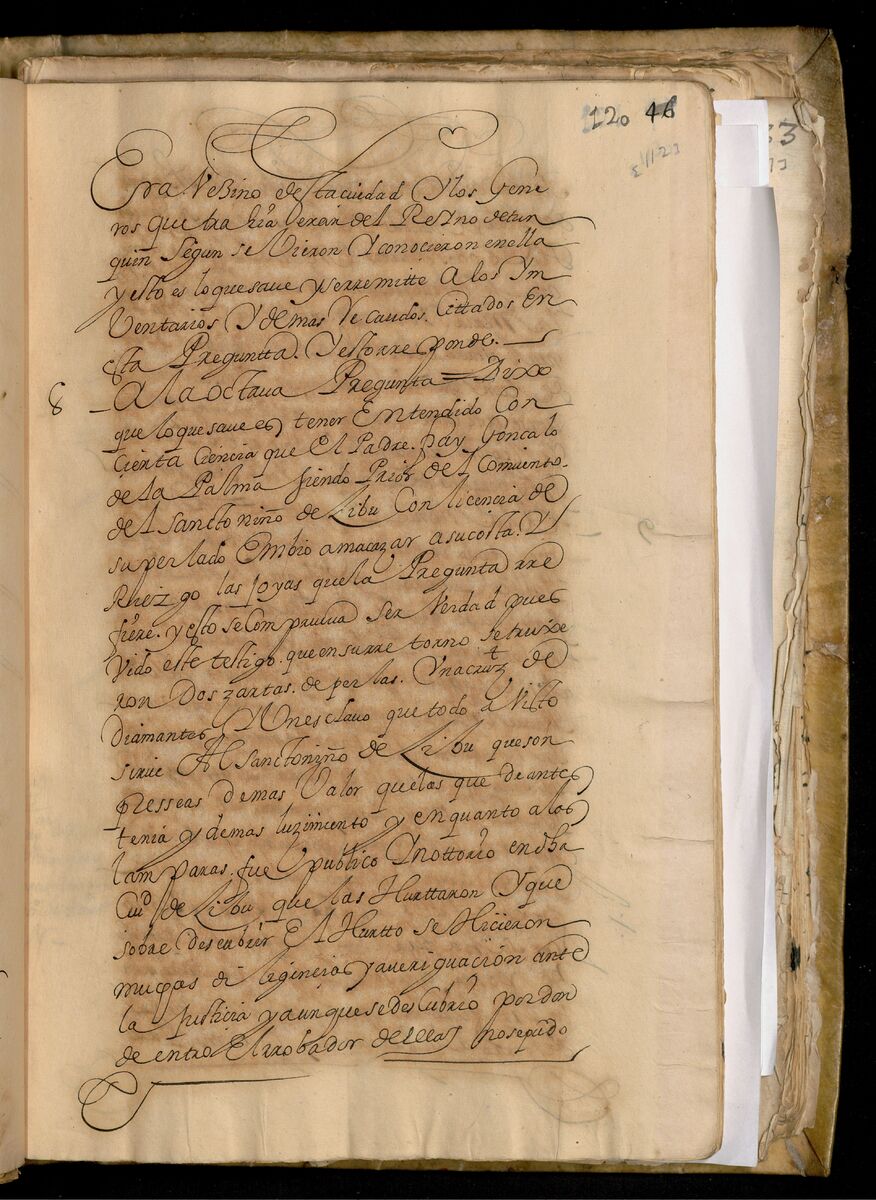 120 46
Era Vezino destaciudad Ylos Gene
ros que trahia Eran del Reyno detun
quin segun se Vieron Y conocieron enella
y esto es loquesaue yserremitte Alos Ym
Ventarios Y demas Recaudos. Cittados En
esta Pregunta. Yestorresponde.
8 Ala octaua Pregunta = Dixo
que lo quesaue es tener Entendido Con
Cierta Ciencia que El Padre. fray Goncalo
de la Palma siendo Prior del Comuento.
del sancto niño de Libu Con licencia de
su perlado Embio amacazar asucosta. Y
Rieizgo las joyas quela Pregunta rre
fiere. y esto secomprueua ser Verdad pues
Vido este testigo. que ensurre torno setruxe
ron Dos zartas. de perlas. Vnacruz de
Diamantes Y Vnesclauo que todo a Visto
sirue Al sanctoniño de Libu queson
presseas demas Valor quelas que deantes
tenia y demas luzimiento y enquanto alas
lamparas. fue publico Ynottorio endha
Ciud de Libu que las Hurttaron Y que
sobre descubrir El Hurtto se Hicieron
muchas diligencias yaueriguacion ante
la justicia yaunquesedescubrio pordon
de entro El rrobador dellas nosepudo